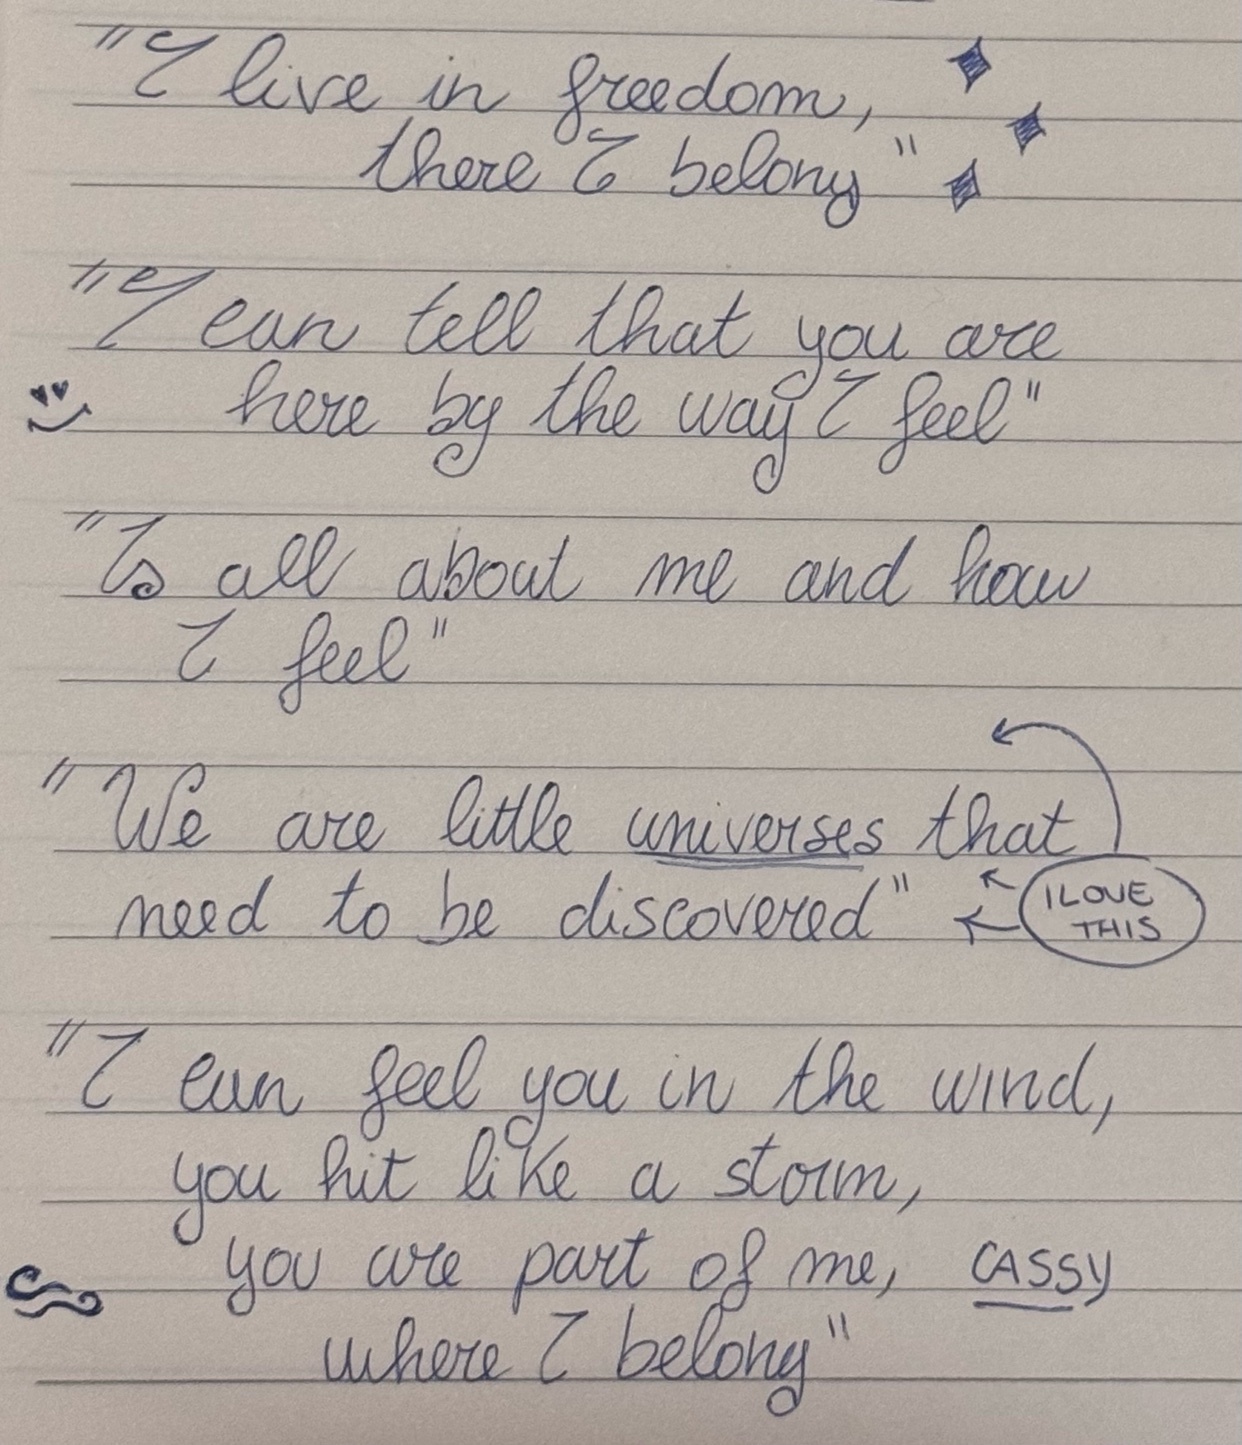 "I live in freedom,
there I belong"
"I can tell that you are
here by the way I feel"
"Is all about me and how
I feel"
"We are little universes that
need to be discovered"
I LOVE
THIS
"I can feel you in the wind,
you hit like a storm,
you are part of me, CASSY
where I belong"